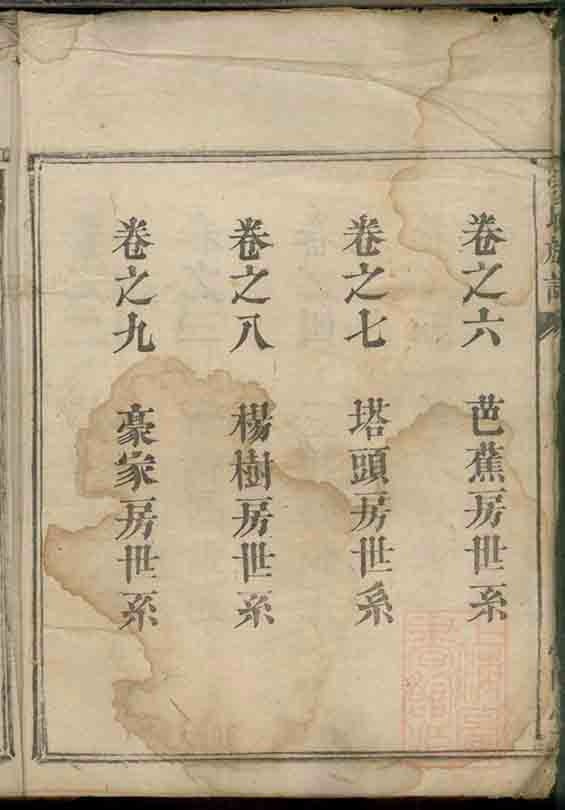 卷之六 芭蕉房世系
卷之七 塔頭房世系
卷之八 楊樹房世系
卷之九 豪家房世系